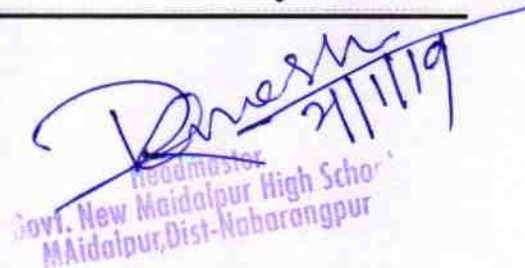 21/1/19
Headmaster
Govt. New Maidalpur High School
MAidalpur,Dist-Nabarangpur